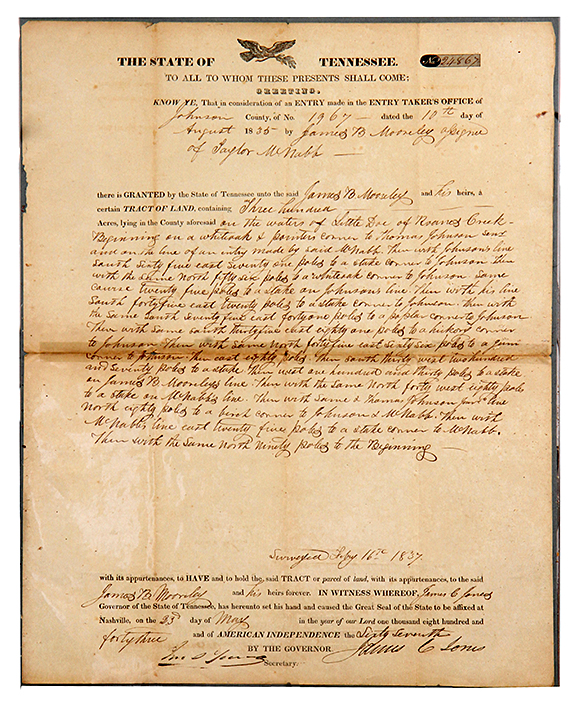 THE STATE OF TENNESSEE. No 24867
TO ALL TO WHOM THESE PRESENTS SHALL COME;
GREETING.
KNOW YE, That in consideration of an ENTRY made in the ENTRY TAKER'S OFFICE of
Johnson County, of No. 1967 dated the 10th day of
August 1835 by James B Mooreley assignee
of Taylor McNabb
there is GRANTED by the State of Tennessee unto the said James B Mooreley and his heirs, a
certain TRACT OF LAND, containing Three hundred
Acres, lying in the County aforesaid on the waters of Little Doe of Roanes Creek
Beginning on a whiteoak & pointers corner to Thomas Johnson senr
and on the line of an entry made by said McNabb. Then with Johnsons line
South Sixty five east Seventy one poles to a stake corner to Johnson then
with the same North fifty six poles to a whiteoak corner to Johnson Same
course twenty five poles to a stake on Johnsons line. Then with his line
South forty five east twenty poles to a stake corner to Johnson. then with
the Same South Seventy five east forty one poles to a poplar corner to Johnson
Then with Same South thirty five east eighty one poles to a hickory corner
to Johnson. Then with Same North forty five east Sixty Six poles to a
corner to Johnson. Then east eighty poles. Then South thirty west two hundred
and Seventy poles to a stake. Then west one hundred and thirty poles to a stake
on James B Mooreleys line. Then with the Same North forty west eighty poles
to a stake on McNabbs line. Then with Same & Thomas Johnson line
North eighty poles to a birch corner to Johnson & McNabb. Then with
McNabbs line east twenty five poles to a stake corner to McNabb.
Then with the Same North Ninety poles to the Beginning
Surveyed Feby 16th 1837.
with its appurtenances, to HAVE and to hold the, said TRACT or parcel of land, with its appurtenances, to the said
James B Mooreley and his heirs forever. IN WITNESS WHEREOF, James C Jones
Governor of the State of Tennessee, has hereunto set his hand and caused the Great Seal of the State to be affixed at
Nashville, on the 23d day of May in the year of our Lord one thousand eight hundred and
forty three and of AMERICAN INDEPENDENCE the Sixty Seventh
BY THE GOVERNOR. James C Jones
Jno S Young Secretary.